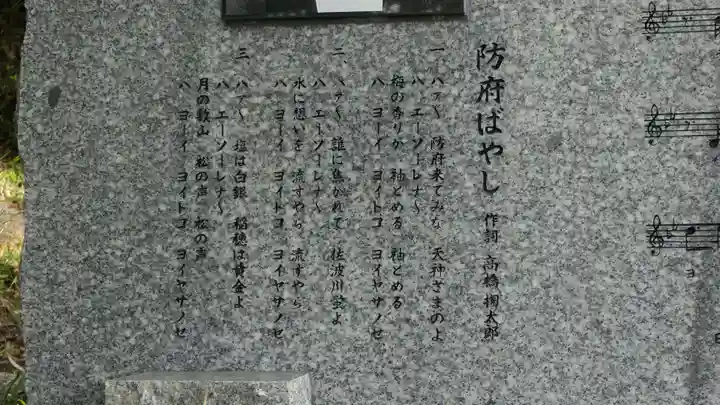 防府ばやし 作詞 高橋掬太郎
一、ハァ〜 防府来てみな 天神ざまのよ
ハ エーソーレナ〜
梅の香りが 袖とめる 袖とめる
ハ ヨーイ ヨイトコ ヨイヤサノセ
二、ハァ〜 誰に焦がれて 佐波川螢よ
ハ エーソーレナ〜
水に想いを 流すやら 流すやら
ハ ヨーイ ヨイトコ ヨイヤサノセ
三、ハァ〜 塩は白銀 稲穂は黄金よ
ハ エーソーレナ〜
月の敷山 松の声 松の声
ハ ヨーイ ヨイトコ ヨイヤサノセ
ヨ